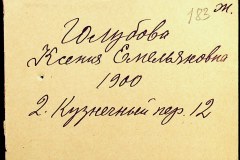 183 Ж.
Голубова
Ксения Емельяновна
1900
2. Кузнечный пер. 12